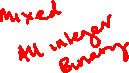 Mixed
All integer
Binary